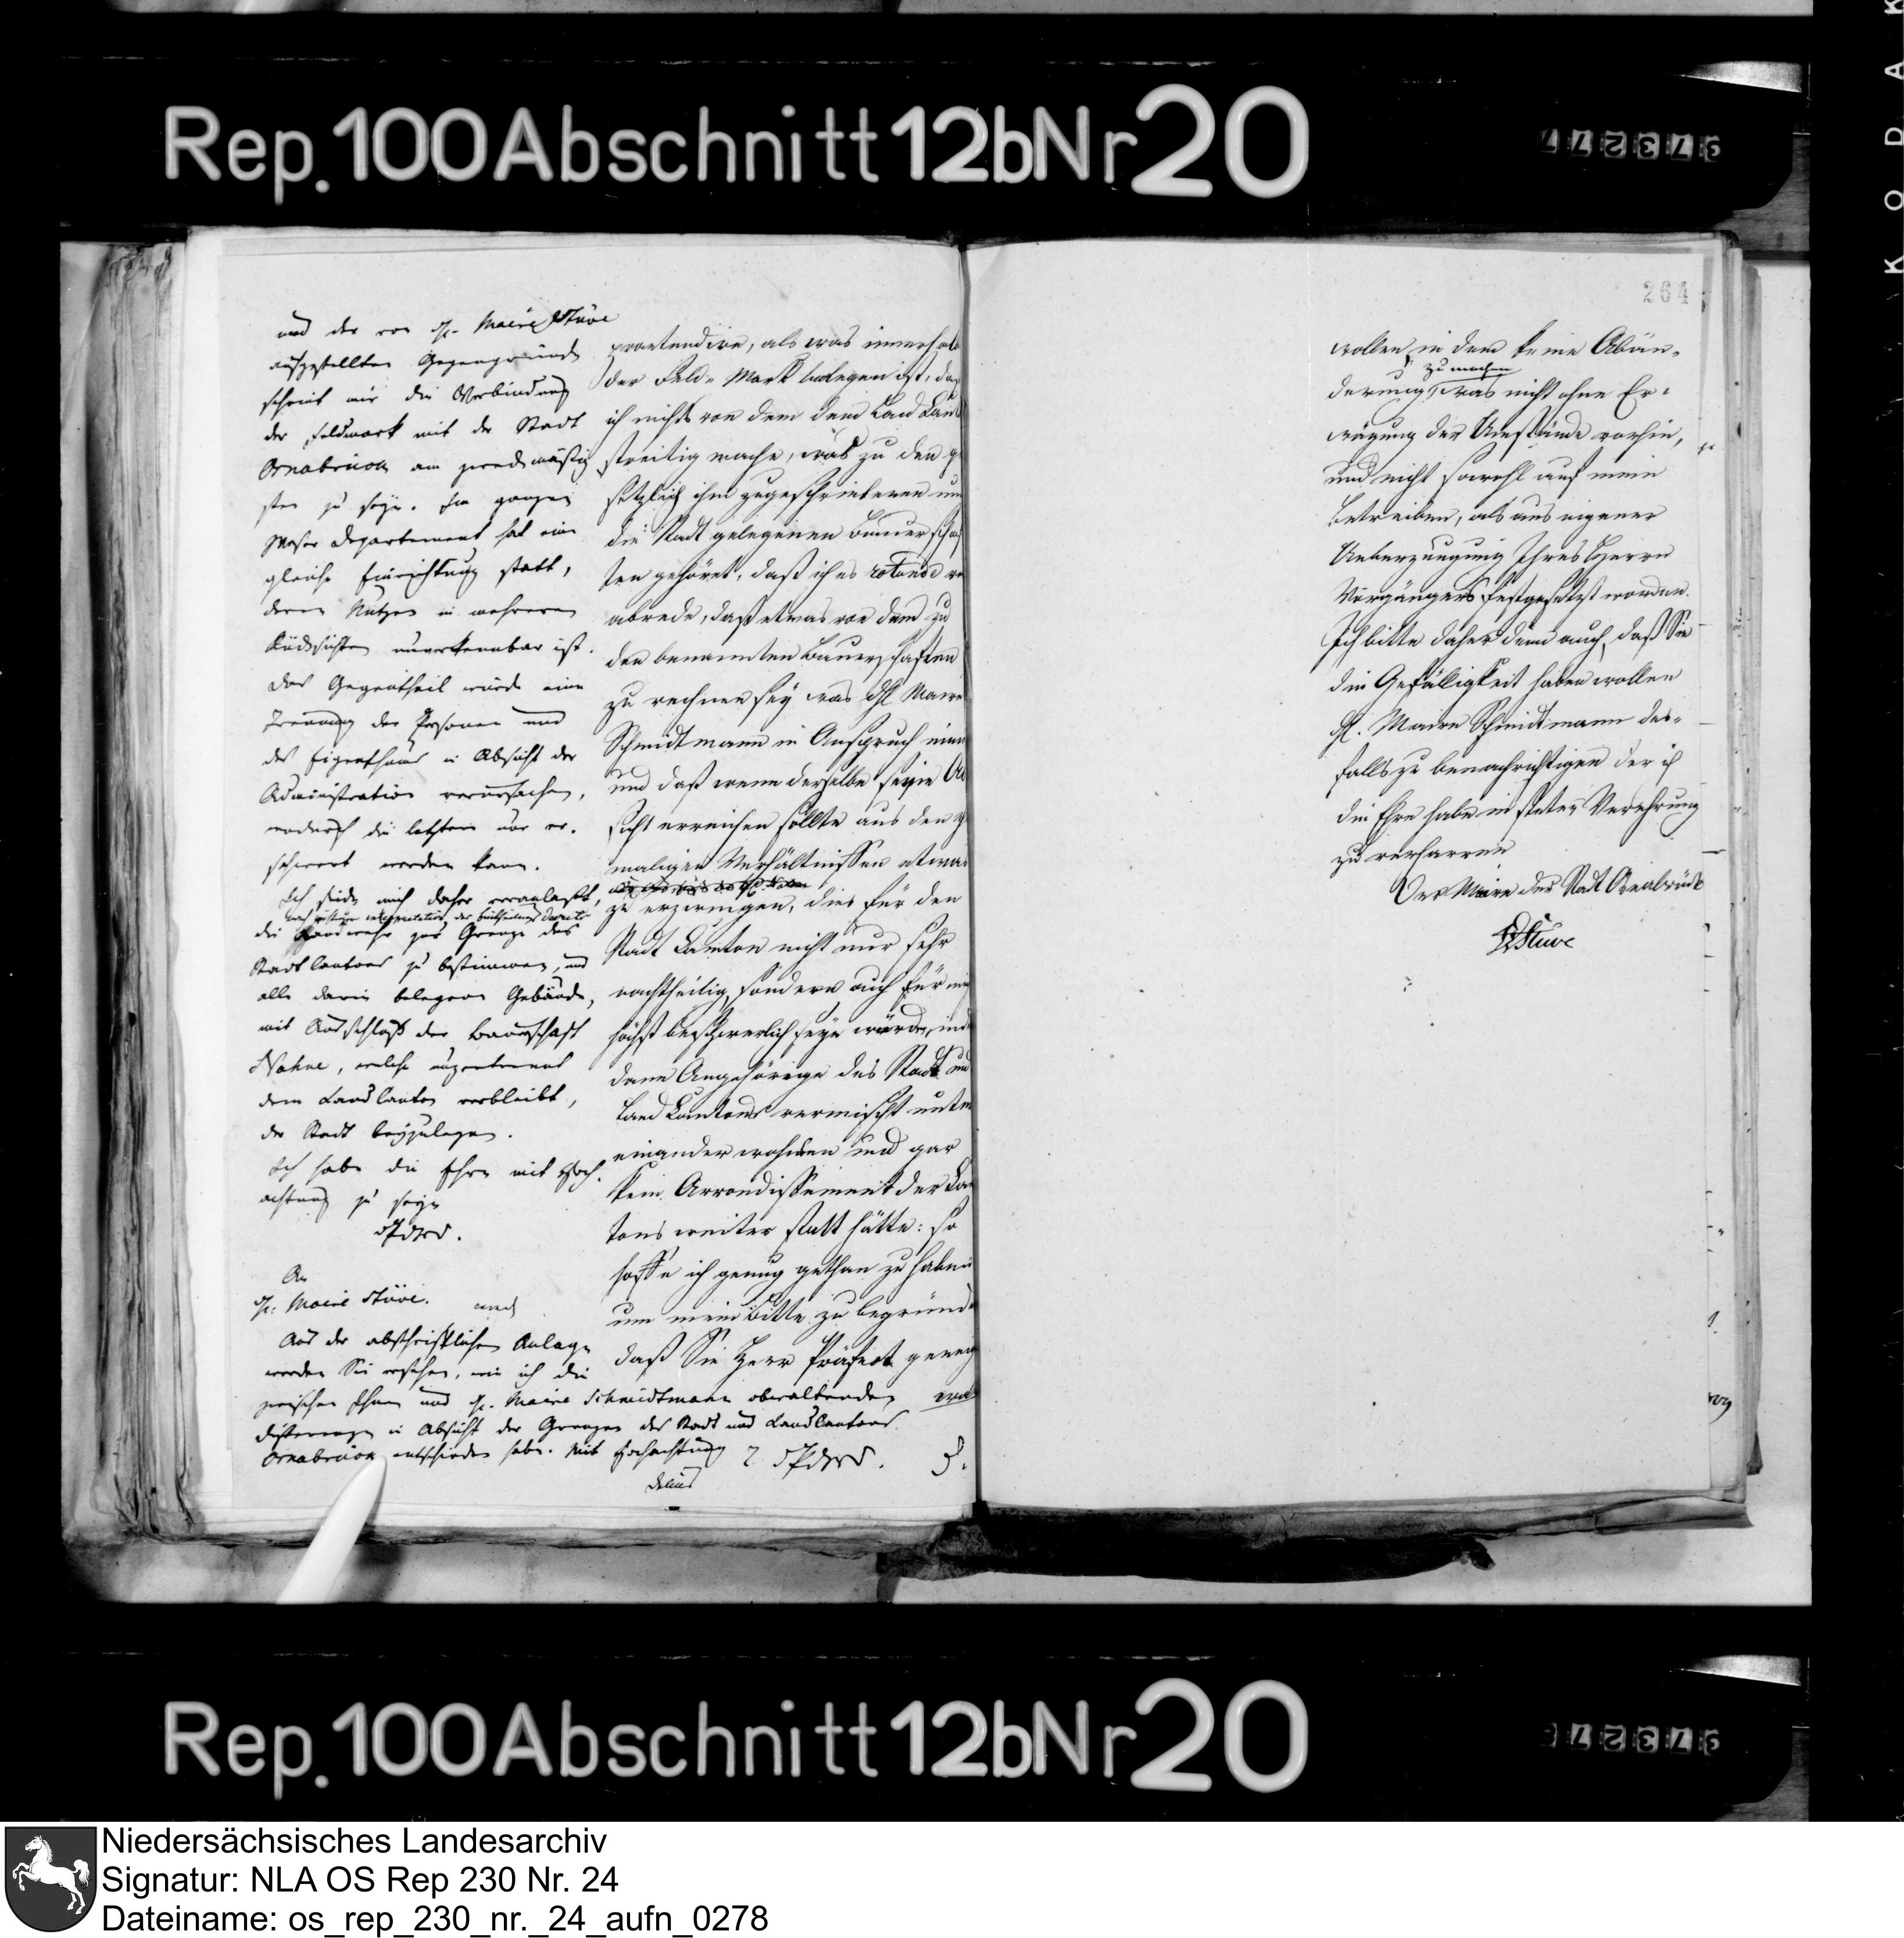 Rep. 100 Abschnitt 12b Nr 20
973277
KODAK
und der von H. Maire Stüve
aufgestellten Gegengründe
scheint mir die Verbindung
der Feldmark mit der Stadt
Osnabrück am zweckmäßig
sten zu seyn. Im ganzen
Weser Departement hat eine
gleiche Einrichtung statt,
deren Nutzen in mehreren
Rücksichten unverkennbar ist.
Das Gegentheil würde eine
Trennung der Personen und
des Eigenthums in Absicht der
Administration verursachen,
wodurch die letztere nur er-
schwert werden kann.
Ich finde mich daher veranlaßt,
nach richtiger interpretation des Eintheilungs Decrets
die Landwehr zur Grenze des
Stadt Cantons zu bestimmen, und
alle darin belegene Gebäude,
mit Ausschluß der Bauerschaft
Nahne, welche ungetrennt
dem Land Canton verbleibt,
der Stadt beyzulegen.
Ich habe die Ehre mit Hoch-
achtung zu seyn
An
H. Maire Stüve.
Aus der abschriftlichen Anlage
werden Sie ersehen, wie ich die
zwischen Ihnen und H. Maire Schmidtmann obwaltenden
Differenzen in Absicht der Grenzen des Stadt und Land Cantons
Osnabrück entschieden habe. Mit Hochachtung
Delius
praetendire, als was innerhalb
der Feld-Mark belegen ist, daß
ich nichts von dem dem Land Can
streitig mache, was zu den ge
setzlich ihm zugeschriebenen um
die Stadt gelegenen Bauerschaf
ten gehöret, daß ich es rotunde
abrede, daß etwas von dem zu
den benannten Bauerschaften
zu rechnen sey was H. Maire
Schmidtmann in Anspruch nimmt
und daß wenn derselbe seine Ab
sicht erreichen sollte aus den
maligen Verhältnissen etwas
zu erzwingen, dies für den
Stadt Canton nicht nur sehr
nachtheilig, sondern auch für mich
höchst beschwerlich seyn würde, indem
dann Angehörige des Stadt und
Land Cantons vermischt unter
einander wohnen und gar
kein Arrondissement der Can
tons weiter statt hätte: so
hoffe ich genug gethan zu haben
um meine Bitte zu begründen
daß Sie Herr Präfect geneig
264
wollen in dem keine Abän-
zu machen
derung, was nicht ohne Er-
wägung der Umstände vorhin,
und nicht sowohl auf mein
Betreiben, als aus eigener
Ueberzeugung Ihres Herrn
Vorgängers festgesetzt worden.
Ich bitte daher denn auch, daß Sie
die Gefälligkeit haben wollen
H. Maire Schmidtmann des-
falls zu benachrichtigen der ich
die Ehre habe in steter Verehrung
zu verharren
Der Maire der Stadt Osnabrück
Stüve
Rep. 100 Abschnitt 12b Nr 20
Niedersächsisches Landesarchiv
Signatur: NLA OS Rep 230 Nr. 24
Dateiname: os_rep_230_nr._24_aufn_0278